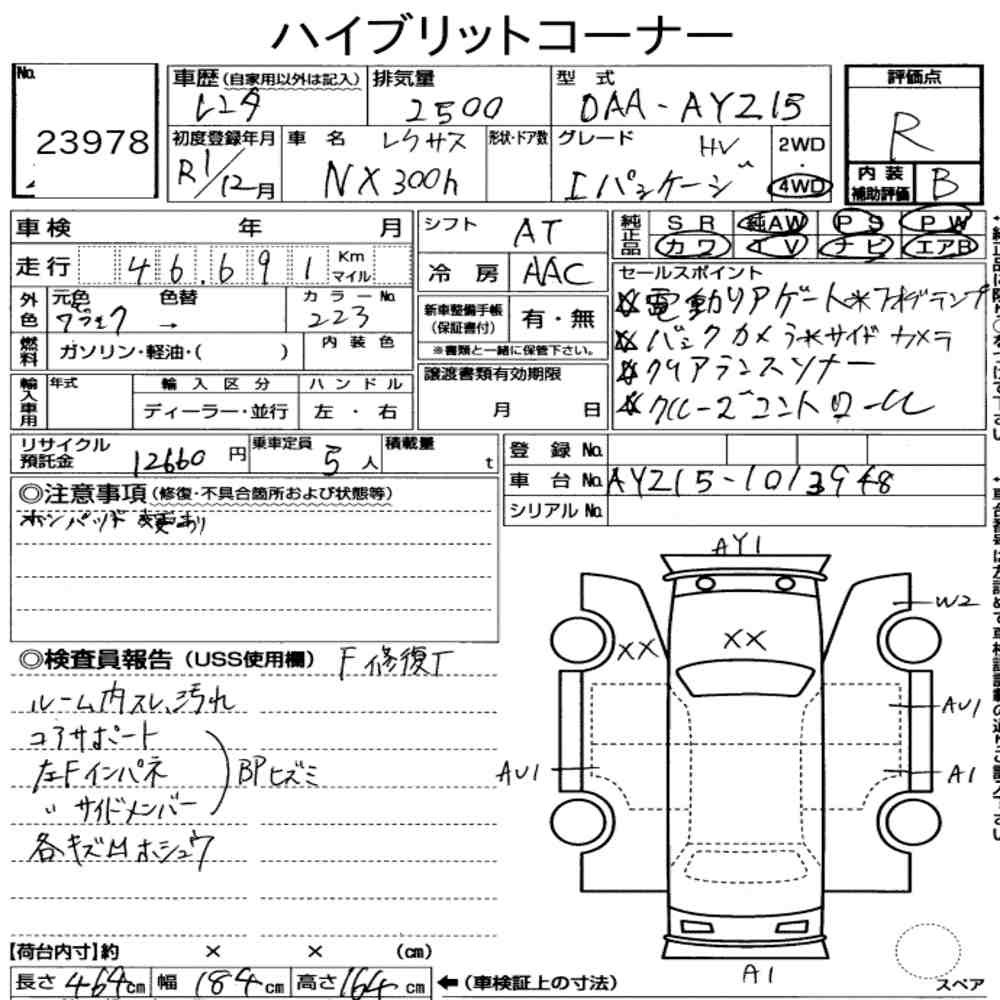 ハイブリットコーナー
No.
23978
車歴 (自家用以外は記入)
レンタ
排気量
2500
型 式
DAA-AYZ15
評価点
R
初度登録年月
R1/12月
車 名
レクサス
NX300h
形状・ドア数
グレード
HV
Iパッケージ
2WD
・
4WD
内装
補助評価
B
車検 年 月
走行 46.691 Km
マイル
シフト
AT
冷房
AAC
純正品
SR 純AW PS PW
カワ TV ナビ エアB
外色
元色
色替
→
カラーNo.
223
燃料
ガソリン・軽油・( )
内装色
新車整備手帳
(保証書付)
有・無
※書類と一緒に保管下さい。
セールスポイント
※電動リアゲート※フォグランプ
※バックカメラ※サイドカメラ
※クリアランスソナー
※クルーズコントロール
輸入車用
年式
輸入区分
ディーラー・並行
ハンドル
左・右
譲渡書類有効期限
月 日
リサイクル
預託金
12660円
乗車定員
5人
積載量
t
登録No.
車台No.
AYZ15-1013948
シリアルNo.
◎注意事項 (修復・不具合箇所および状態等)
◎検査員報告 (USS使用欄) F修復T
ルーム内スレ、汚れ
コアサポート
左Fインパネ
〃 サイドメンバー
BPヒズミ
各キズ凹ホシュウ
AY1
W2
XX
XX
AU1
AU1
A1
A1
スペア
【荷台内寸】約 × × (cm)
長さ 464cm 幅 184cm 高さ 164cm
←(車検証上の寸法)